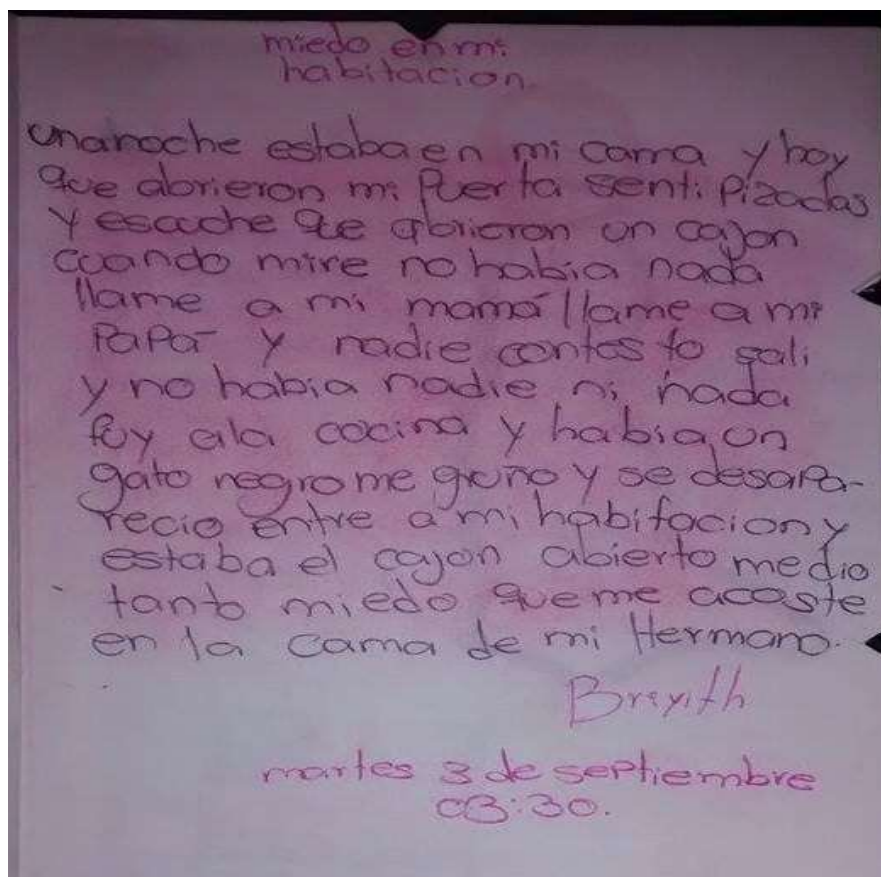 miedo en mi
habitacion.
unanoche estaba en mi cama y hoy
que abrieron mi Puerta senti Pizadas
y escuche que abrieron un cajon
cuando mire no habia nada
llame a mi mamá llame a mi
PaPá y nadie contes to sali
y no habia nadie ni nada
fuy ala cocina y habia un
gato negro me gruño y se desapa-
recio entre a mi habitacion y
estaba el cajon abierto medio
tanto miedo que me acoste
en la cama de mi Hermano.
Breyith
martes 3 de septiembre
03:30.